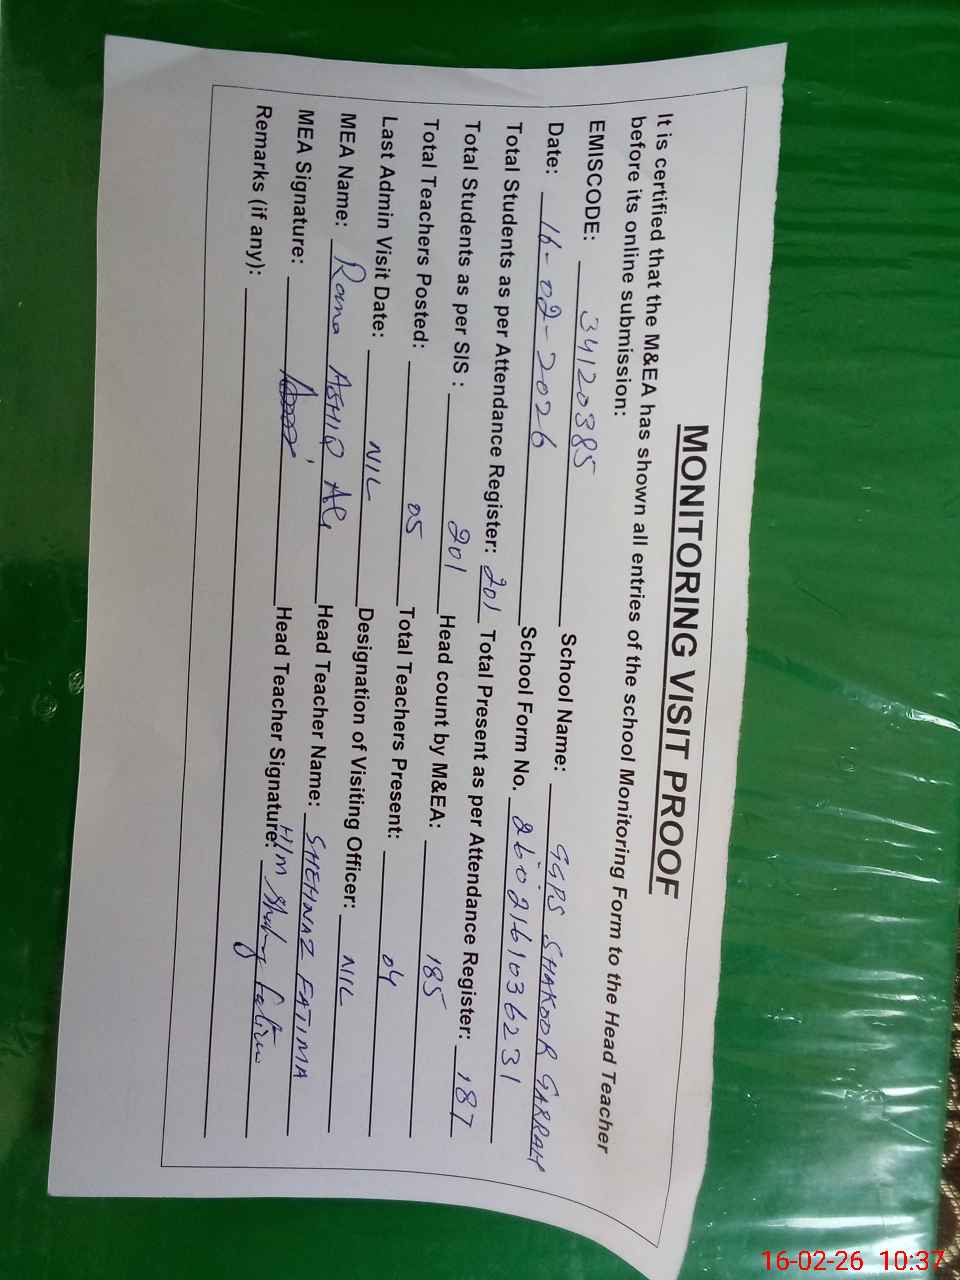 MONITORING VISIT PROOF
It is certified that the M&EA has shown all entries of the school Monitoring Form to the Head Teacher
before its online submission:
EMISCODE: 34120385 School Name: GGPS SHAKOOR GARRAH
Date: 16-02-2026 School Form No. 2602161036231
Total Students as per Attendance Register: 201 Total Present as per Attendance Register: 187
Total Students as per SIS : 201 Head count by M&EA: 185
Total Teachers Posted: 05 Total Teachers Present: 04
Last Admin Visit Date: NIL Designation of Visiting Officer: NIL
MEA Name: Rana ASHIQ Ali Head Teacher Name: SHEHNAZ FATIMA
MEA Signature: Head Teacher Signature: H/M Fatima
Remarks (if any):
16-02-26 10:37